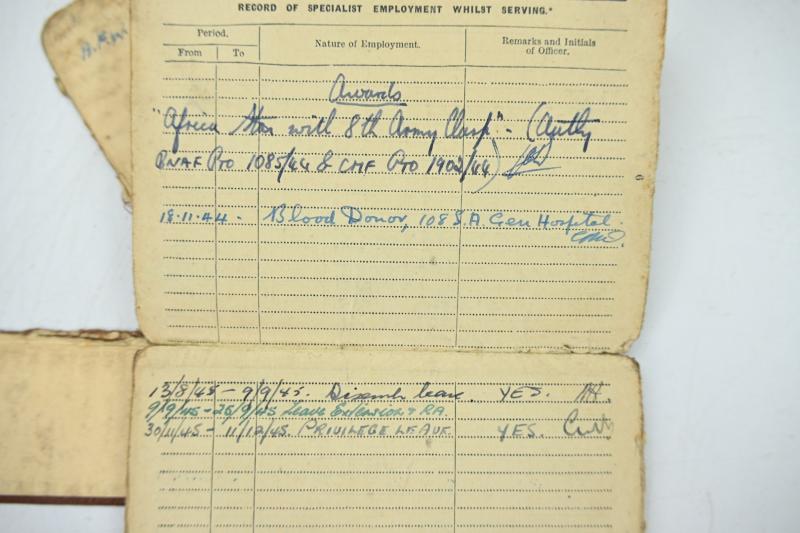 RECORD OF SPECIALIST EMPLOYMENT WHILST SERVING.*
Period.
Nature of Employment.
Remarks and Initials of Officer.
From To
Awards
"Africa Star with 8th Army Clasp" - (Authy
BNAF Pto 1085/44 & CMF Pto 1902/44)
18.11.44. - Blood Donor, 108 S.A Gen Hospital.
13/8/45 - 9/9/45. Disemb leave. YES.
9/9/45 - 26/9/45 Leave Extension & RA
30/11/45 - 11/12/45. PRIVILEGE LEAVE YES.